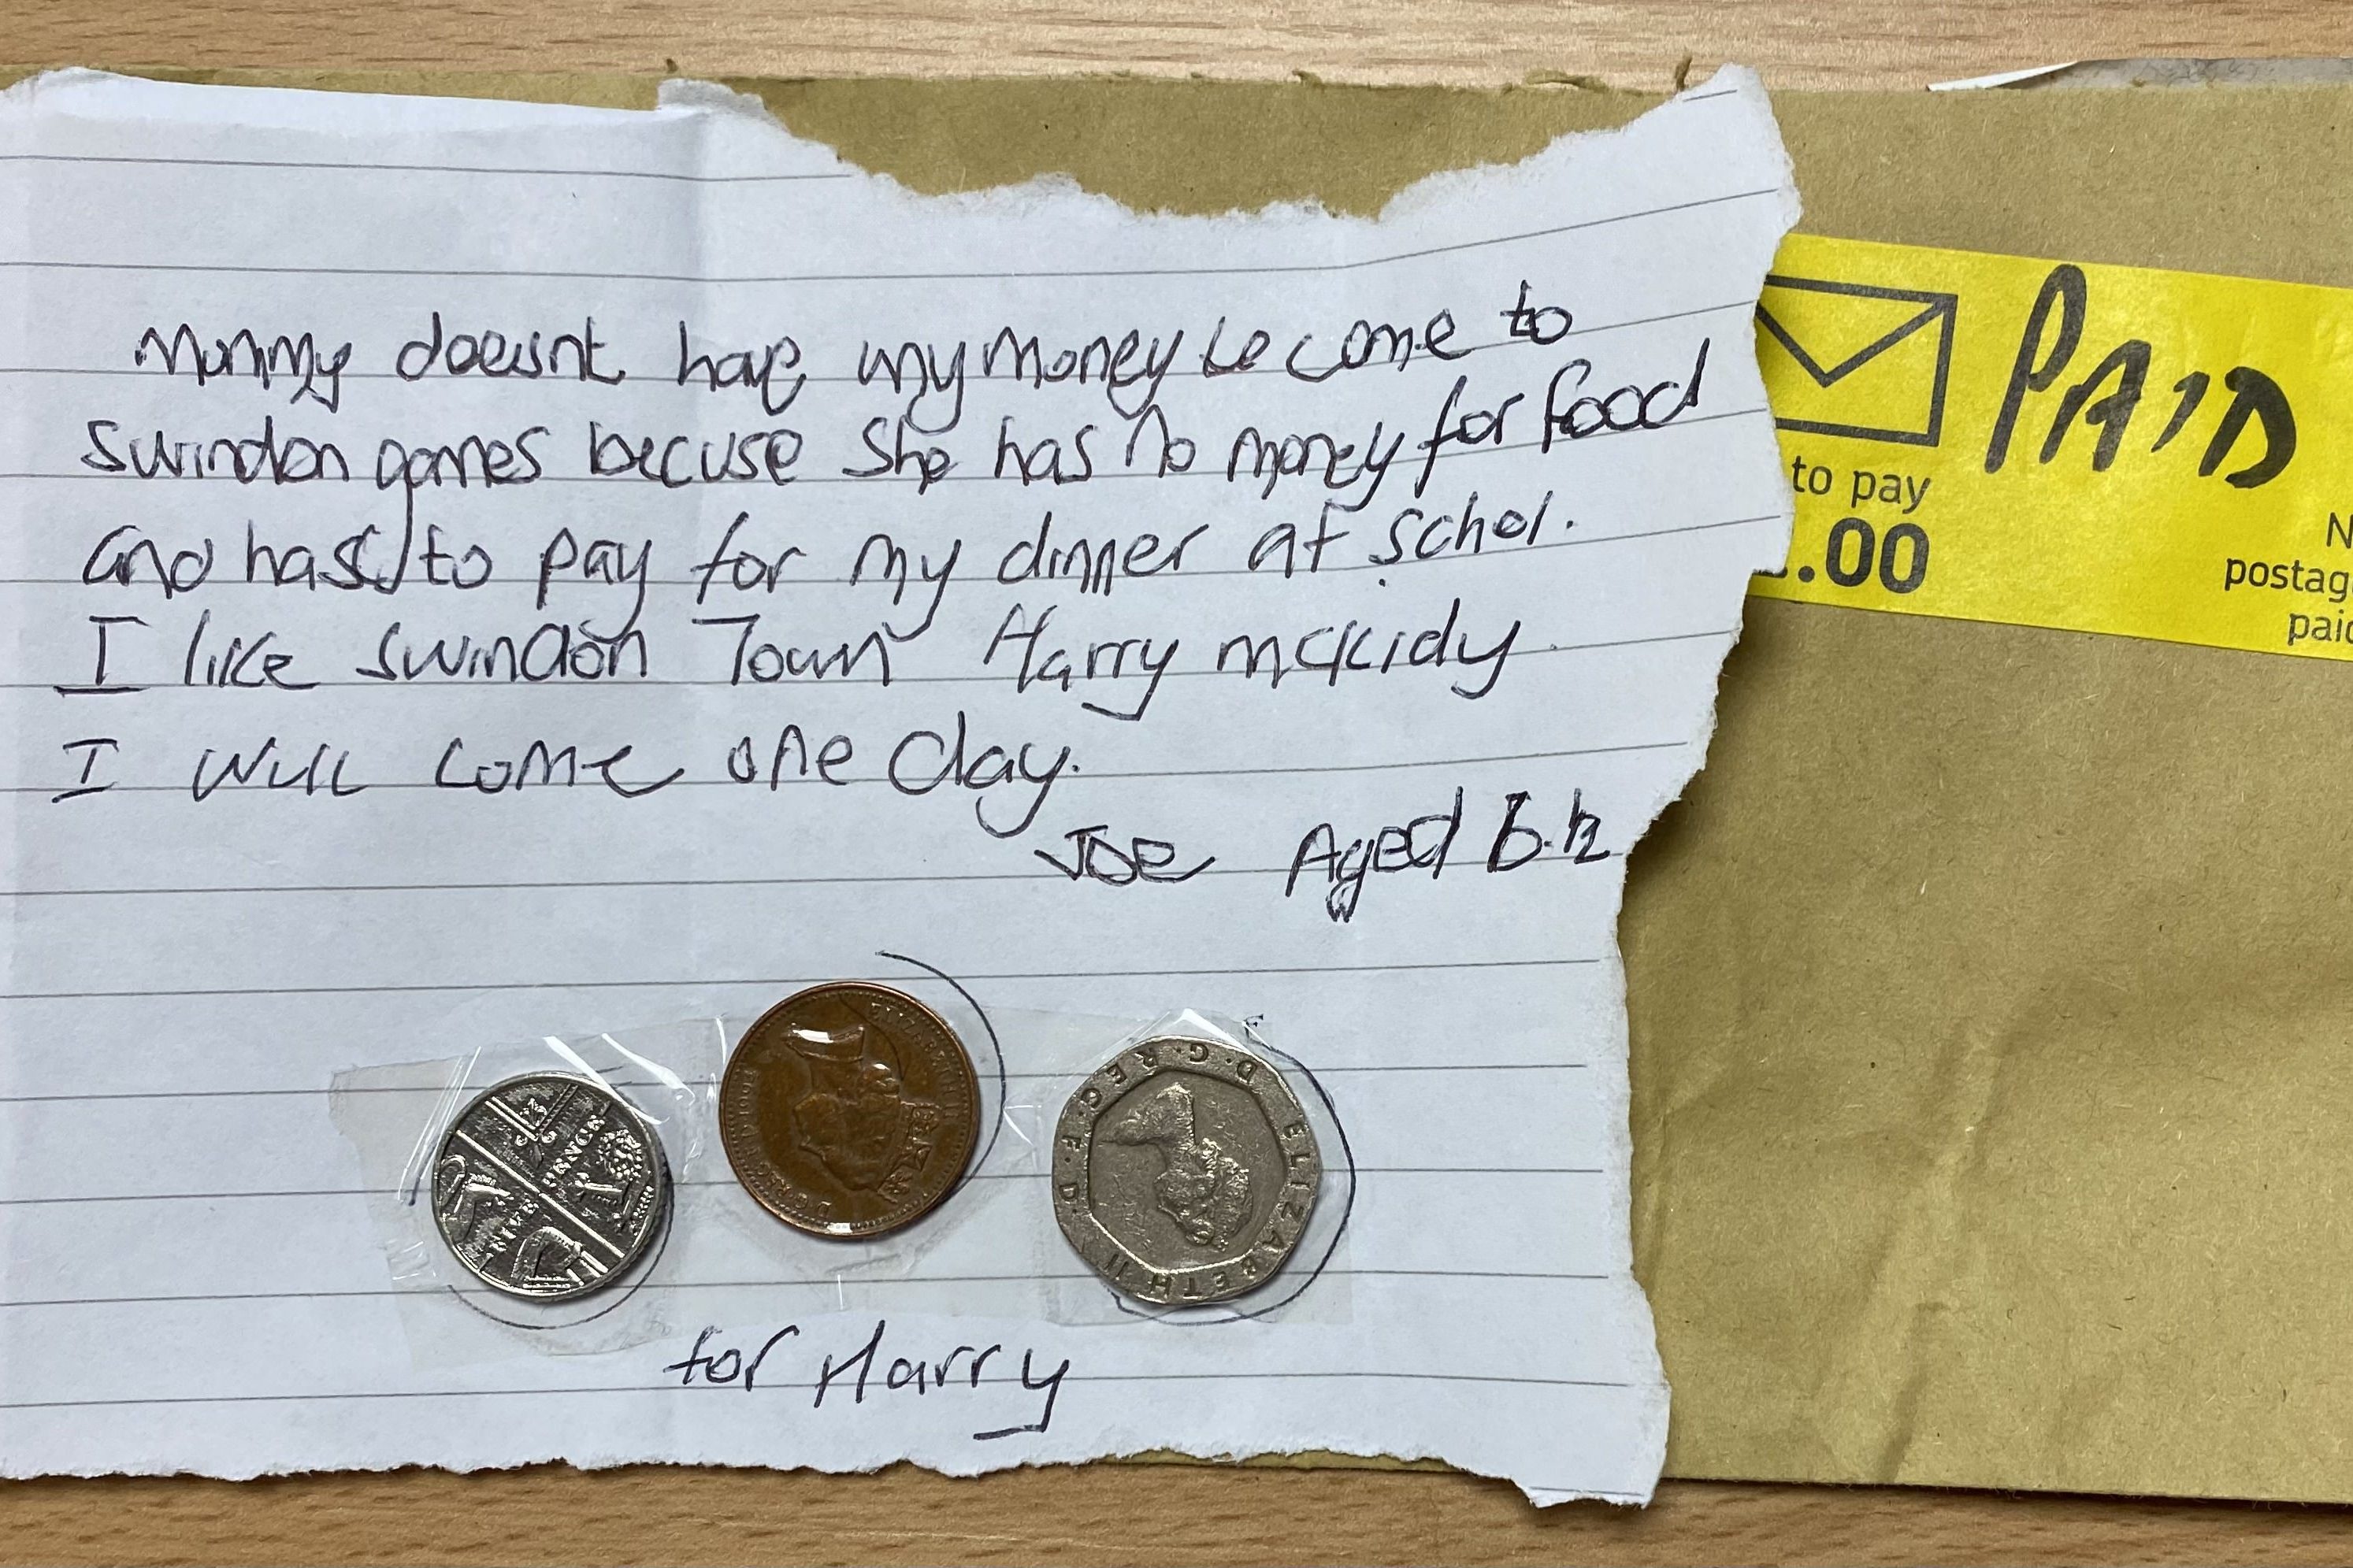 Mummy doesnt have any money to come to
Swindon games becuse She has no money for food
and has to pay for my dinner at schol.
I like Swindon Town Harry mckidy.
I will come one day.
Joe Aged 6.½
for Harry
PAID
to pay
.00
postag
paid
FIVE PENCE
ELIZABETH II D·G·REG·F·D·